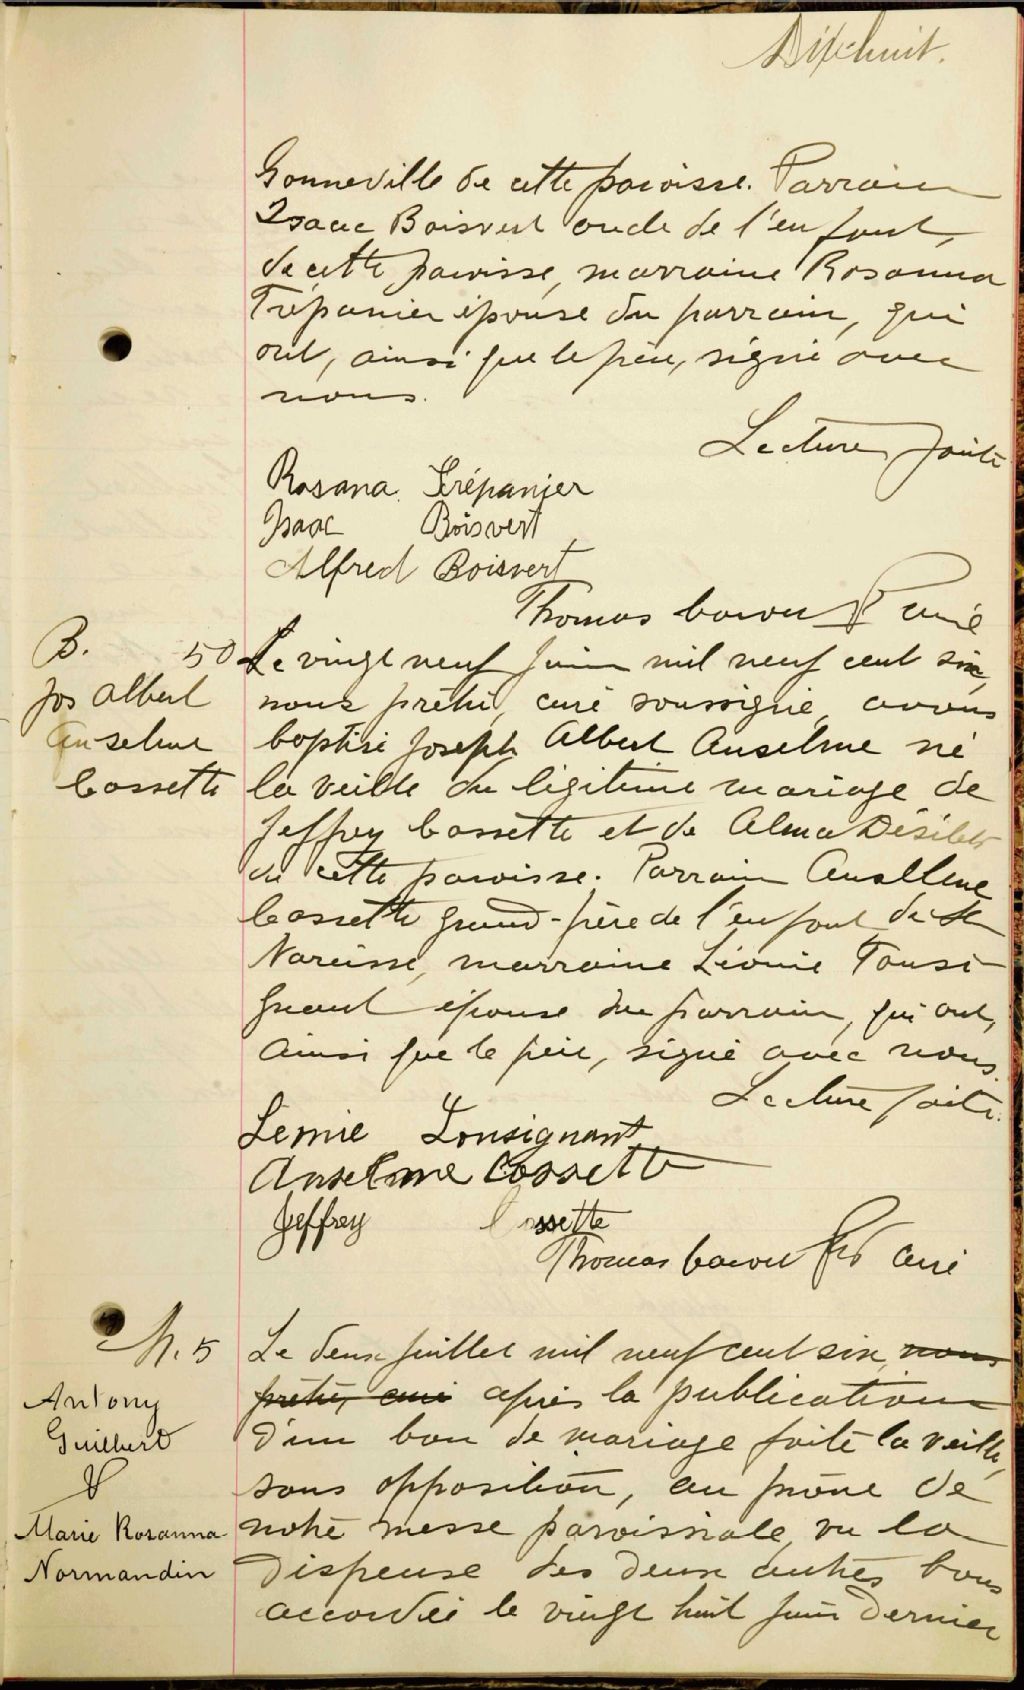 Dix-huit.
Gonneville de cette paroisse. Parrain
Isaac Boisvert oncle de l'enfant,
de cette paroisse, marraine Rosanna
Trépanier épouse du parrain, qui
ont, ainsi que le père, signé avec
nous.
Lecture faite
Rosana Trépanier
Isaac Boisvert
Alfred Boisvert
Thomas Caron Ptre curé
B. 50
Jos Albert
Anselme
Cossette
Le vingt neuf juin mil neuf cent six,
nous prêtre, curé soussigné, avons
baptisé Joseph Albert Anselme né
la veille du légitime mariage de
Jeffrey Cossette et de Alma Désilets
de cette paroisse. Parrain Anselme
Cossette grand-père de l'enfant de St
Narcisse, marraine Léonie Tousi-
gnant épouse du parrain, qui ont,
ainsi que le père, signé avec nous.
Lecture faite.
Lemie Tousignant
Anselme Cossette
Jeffrey Cossette
Thomas Caron Ptre curé
M. 5
Antony
Guilbert
&
Marie Rosanna
Normandin
Le deux juillet mil neuf cent six, nous
prêtre, curé après la publication
d'un ban de mariage faite la veille,
sans opposition, au prône de
notre messe paroissiale, vu la
dispense des deux autres bans
accordée le vingt huit juin dernier